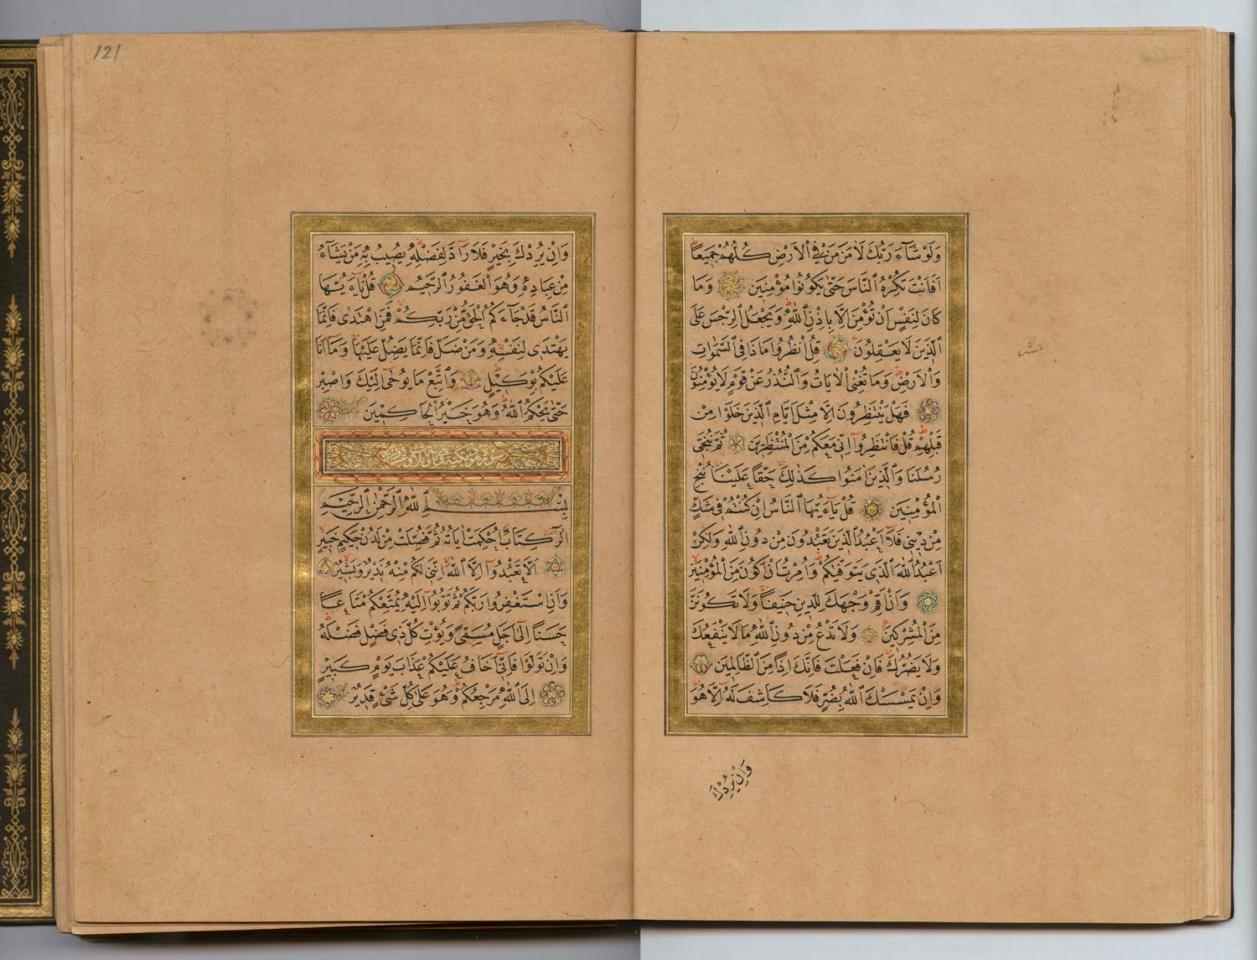 وَلَوْ شَآءَ رَبُّكَ لَاٰمَنَ مَنْ فِي الْاَرْضِ كُلُّهُمْ جَمِيعًا
اَفَاَنْتَ تُكْرِهُ النَّاسَ حَتّٰى يَكُونُوا مُؤْمِنِينَ وَمَا
كَانَ لِنَفْسٍ اَنْ تُؤْمِنَ اِلَّا بِاِذْنِ اللّٰهِ وَيَجْعَلُ الرِّجْسَ عَلَى
الَّذِينَ لَا يَعْقِلُونَ قُلِ انْظُرُوا مَاذَا فِي السَّمٰوَاتِ
وَالْاَرْضِ وَمَا تُغْنِي الْاٰيَاتُ وَالنُّذُرُ عَنْ قَوْمٍ لَا يُؤْمِنُونَ
فَهَلْ يَنْتَظِرُونَ اِلَّا مِثْلَ اَيَّامِ الَّذِينَ خَلَوْا مِنْ
قَبْلِهِمْ قُلْ فَانْتَظِرُوا اِنِّي مَعَكُمْ مِنَ الْمُنْتَظِرِينَ ثُمَّ نُنَجِّي
رُسُلَنَا وَالَّذِينَ اٰمَنُوا كَذٰلِكَ حَقًّا عَلَيْنَا نُنْجِ
الْمُؤْمِنِينَ قُلْ يَآ اَيُّهَا النَّاسُ اِنْ كُنْتُمْ فِي شَكٍّ
مِنْ دِينِي فَلَآ اَعْبُدُ الَّذِينَ تَعْبُدُونَ مِنْ دُونِ اللّٰهِ وَلٰكِنْ
اَعْبُدُ اللّٰهَ الَّذِي يَتَوَفّٰيكُمْ وَاُمِرْتُ اَنْ اَكُونَ مِنَ الْمُؤْمِنِينَ
وَاَنْ اَقِمْ وَجْهَكَ لِلدِّينِ حَنِيفًا وَلَا تَكُونَنَّ
مِنَ الْمُشْرِكِينَ وَلَا تَدْعُ مِنْ دُونِ اللّٰهِ مَا لَا يَنْفَعُكَ
وَلَا يَضُرُّكَ فَاِنْ فَعَلْتَ فَاِنَّكَ اِذًا مِنَ الظَّالِمِينَ
وَاِنْ يَمْسَسْكَ اللّٰهُ بِضُرٍّ فَلَا كَاشِفَ لَهُ اِلَّا هُوَ
وَاِنْ يُرِدْكَ
121
وَاِنْ يُرِدْكَ بِخَيْرٍ فَلَا رَآدَّ لِفَضْلِهِ يُصِيبُ بِهِ مَنْ يَشَآءُ
مِنْ عِبَادِهِ وَهُوَ الْغَفُورُ الرَّحِيمُ قُلْ يَآ اَيُّهَا
النَّاسُ قَدْ جَآءَكُمُ الْحَقُّ مِنْ رَبِّكُمْ فَمَنِ اهْتَدٰى فَاِنَّمَا
يَهْتَدِي لِنَفْسِهِ وَمَنْ ضَلَّ فَاِنَّمَا يَضِلُّ عَلَيْهَا وَمَآ اَنَا
عَلَيْكُمْ بِوَكِيلٍ وَاتَّبِعْ مَا يُوحٰى اِلَيْكَ وَاصْبِرْ
حَتّٰى يَحْكُمَ اللّٰهُ وَهُوَ خَيْرُ الْحَاكِمِينَ
بِسْمِ اللّٰهِ الرَّحْمٰنِ الرَّحِيمِ
الٓرٰ كِتَابٌ اُحْكِمَتْ اٰيَاتُهُ ثُمَّ فُصِّلَتْ مِنْ لَدُنْ حَكِيمٍ خَبِيرٍ
اَلَّا تَعْبُدُوٓا اِلَّا اللّٰهَ اِنَّنِي لَكُمْ مِنْهُ نَذِيرٌ وَبَشِيرٌ
وَاَنِ اسْتَغْفِرُوا رَبَّكُمْ ثُمَّ تُوبُوٓا اِلَيْهِ يُمَتِّعْكُمْ مَتَاعًا
حَسَنًا اِلٰٓى اَجَلٍ مُسَمًّى وَيُؤْتِ كُلَّ ذِي فَضْلٍ فَضْلَهُ
وَاِنْ تَوَلَّوْا فَاِنِّيٓ اَخَافُ عَلَيْكُمْ عَذَابَ يَوْمٍ كَبِيرٍ
اِلَى اللّٰهِ مَرْجِعُكُمْ وَهُوَ عَلٰى كُلِّ شَيْءٍ قَدِيرٌ